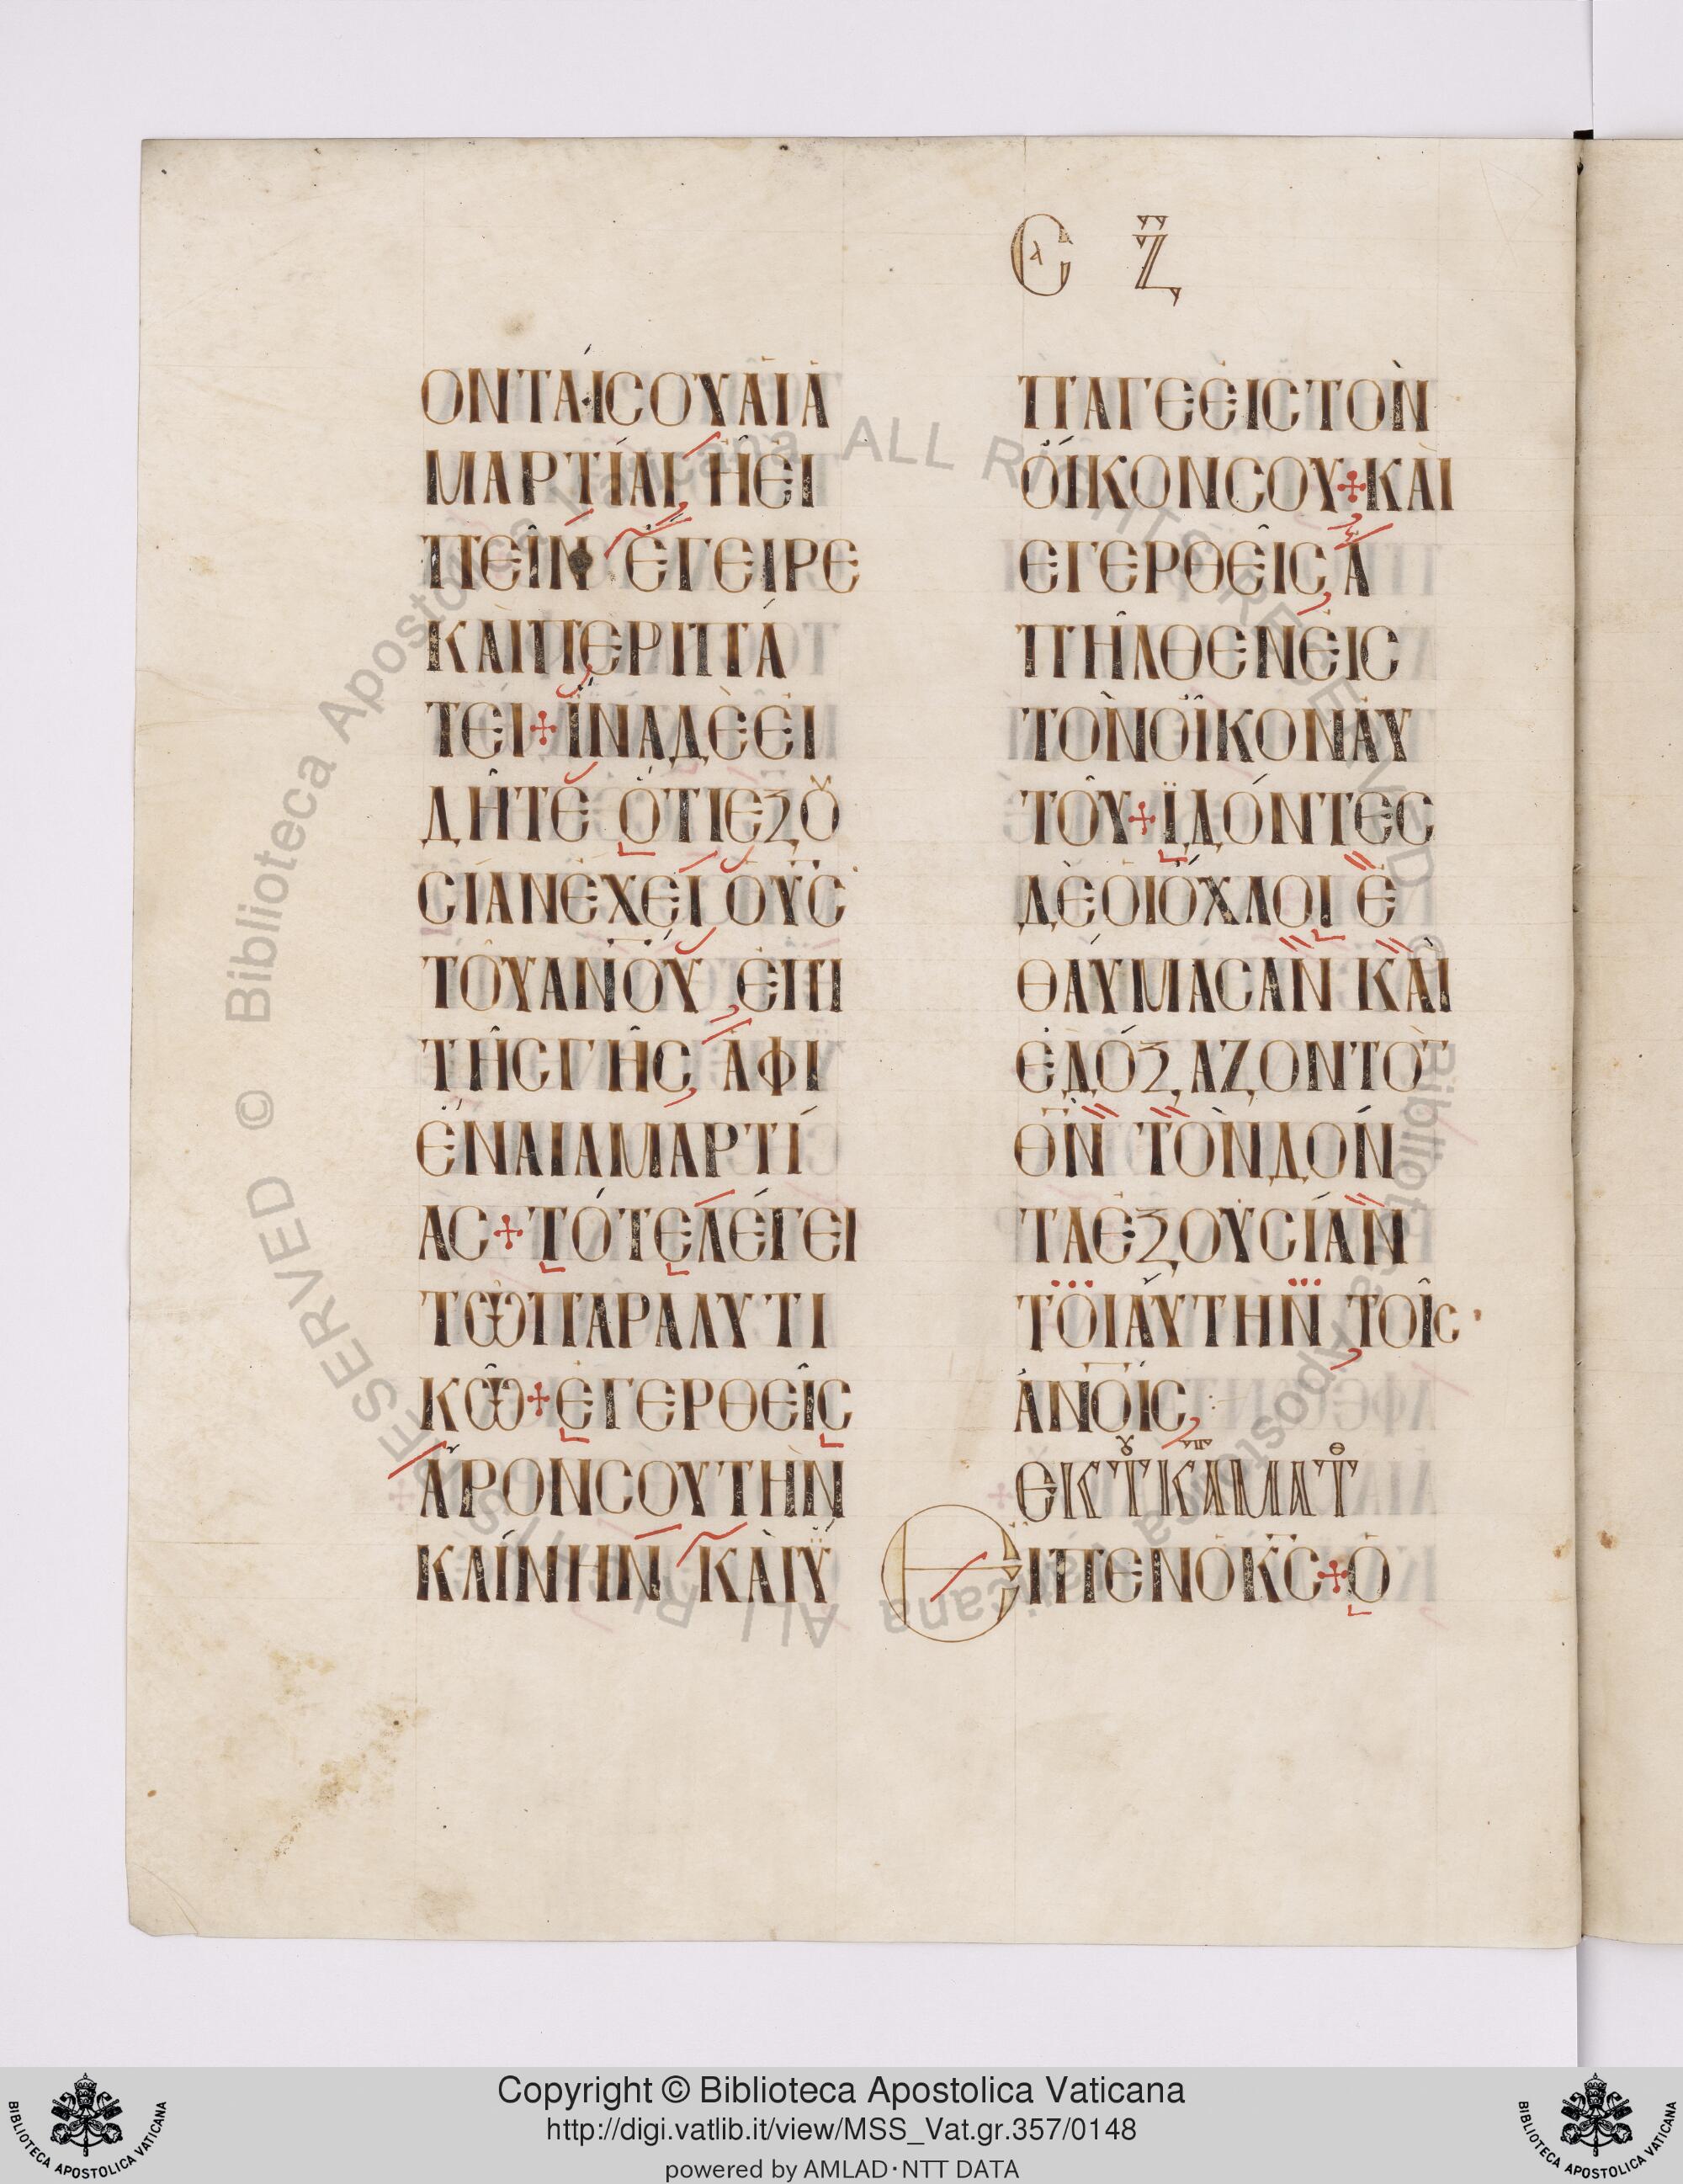 Κυ Ζ
ΟΝΤΑΊCΟΥΑἹἉ
ΜΑΡΤΊΑΙ ἪΕἸ
ΠΕΙ͂Ν ἜΓΕΙΡΕ
ΚΑῚΠΕΡΙΠΆ
ΤΕΙ + ἽΝΑΔῈΕἸ
ΔΗ͂ΤΕ ὍΤΙΕΞΟΥ
CΊΑΝἜΧΕΙ ὉΥ̅C̅
ΤΟΥ͂ΑΝ̅Ο̅Υ̅ ἘΠΙ
ΤΗ͂CΓΗ͂C ἈΦΙ
ΈΝΑΙΑΜΑΡΤΊ
ΑC + ΤΌΤΕΛΈΓΕΙ
ΤΩ͂ΠΑΡΑΛΥΤΙ
ΚΩ͂ + ἘΓΕΡΘΕῚC
ἎΡΟΝCΟΥΤῊΝ
ΚΛΊΝΗΝ ΚΑῚΫ
ΠΑΓΕΕἸCΤῸΝ
ΟἾΚΟΝCΟΥ + ΚΑῚ
ΕΓΕΡΘΕῚC Ἀ
ΠΗ͂ΛΘΕΝΕἸC
ΤῸΝΟἾΚΟΝΑΥ
ΤΟΥ͂ + ΪΔΌΝΤΕC
ΔῈΟἹὌΧΛΟΙ Ἐ
ΘΑΎΜΑCΑΝ ΚΑῚ
ἘΔΌΞΑΖΟΝΤΟ
Θ̅Ν̅ ΤῸΝΔΌΝ
ΤΑἘΞΟΥCΊΑΝ
ΤΟΙΑΎΤΗΝ ΤΟΙ͂C
ἈΝ̅Ο̅Ι̅C̅
ΕΚ ΤΟΥ ΚΑΤΑ ΜΑΤΘ
ΕἾΠΕΝὉΚ̅C̅ + Ὁ
Copyright © Biblioteca Apostolica Vaticana
http://digi.vatlib.it/view/MSS_Vat.gr.357/0148
powered by AMLAD·NTT DATA
BIBLIOTECA APOSTOLICA VATICANA
BIBLIOTECA APOSTOLICA VATICANA
© Biblioteca Apostolica Vaticana ALL RIGHTS RESERVED © Biblioteca Apostolica Vaticana ALL RIGHTS RESERVED